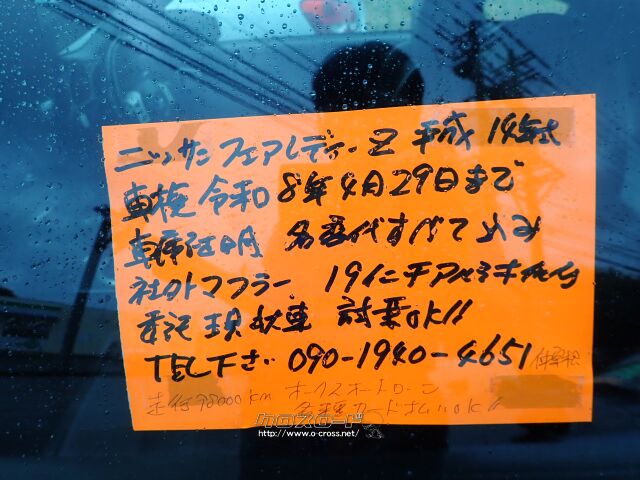 ニッサンフェアレディーZ 平成14年式
車検 令和8年4月29日まで
名変代すべて込み
社外マフラー 19インチアルミ
委託現状車 試乗OK!!
TEL下さい 090-1940-4651
走行98000km オークスオートローン
各種カード払いOK!!
クロスロード
http://www.o-cross.net/